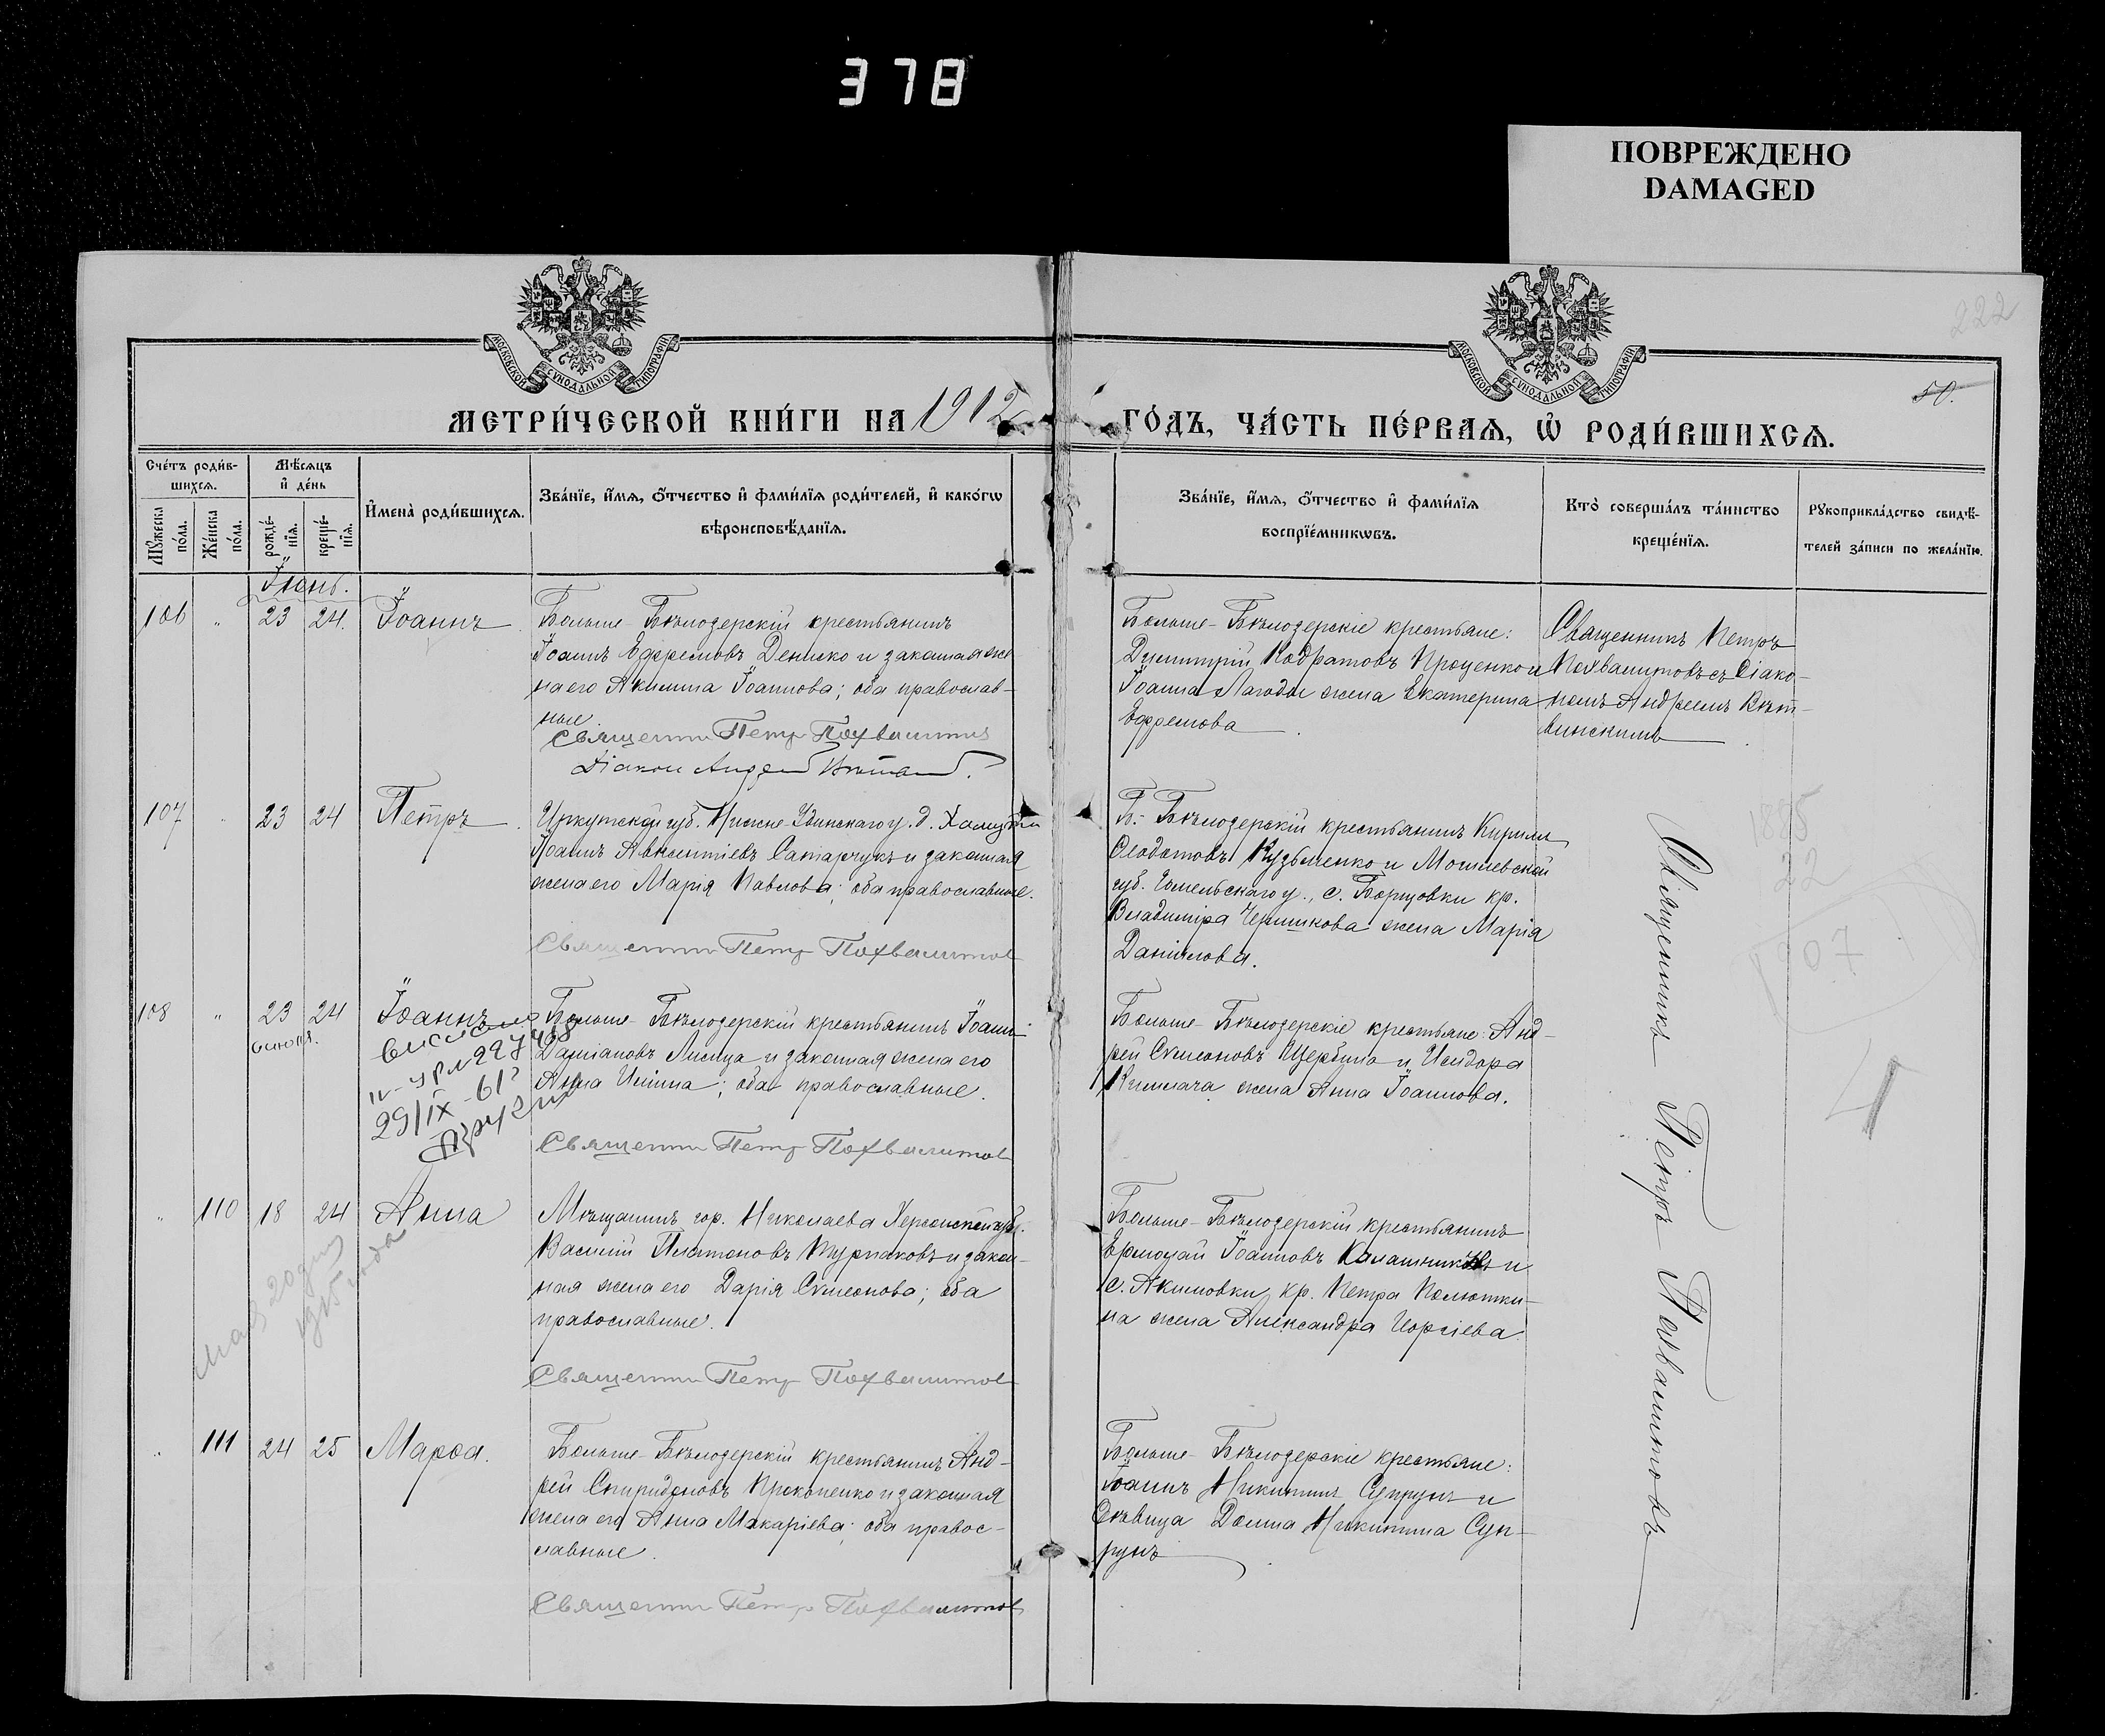 378
ПОВРЕЖДЕНО
DAMAGED
222
50.
МОСКОВСКОЙ СѴНОДАЛЬНОЙ ТИПОГРАФІИ
МОСКОВСКОЙ СѴНОДАЛЬНОЙ ТИПОГРАФІИ
МЕТРИ́ЧЕСКОЙ КНИ́ГИ НА 1912
ГО́ДЪ, ЧА́СТЬ ПЕ́РВАЯ, Ѡ҆ РОДИ́ВШИХСЯ.
Сче́тъ роди́в-
шихся.
Мѣ́сяцъ
и҆ де́нь
Мꙋ́жеска
по́ла.
Же́нска
по́ла.
рожде́-
нїя.
креще́-
нїя.
И҆мена̀ роди́вшихся.
Зва́нїе, и҆́мя, ѻ҆́тчество и҆ фами́лїя роди́телей, и҆ како́гѡ
вѣроисповѣ́данїя.
Зва́нїе, и҆́мя, ѻ҆́тчество и҆ фами́лїя
воспрїе́мникѡвъ.
Кто̀ соверша́лъ та́инство
креще́нїя.
Рꙋкоприкла́дство свидѣ́-
телей за́писи по жела́нїю.
Іюнь.
106 " 23 24. Іоаннъ
Больше-Бѣлозерскій крестьянинъ
Іоаннъ Ефремовъ Денеско и законная же
на его Акилина Іоаннова; оба православ-
ные.
Священник Петр Похвалитов
Діакон Андрей
Больше-Бѣлозерскіе крестьяне:
Димитрій Кодратовъ Проценко и
Іоанна Лагоды жена Екатерина
Ефремова
Священникъ Петръ
Похвалитовъ съ Діако-
номъ Андреемъ Вѣт-
винскимъ
107 " 23 24 Петръ
Иркутской губ. Нижне-Удинскаго у. д.
Іоаннъ Авксентіевъ Сатарчукъ и законная
жена его Марія Павлова; оба православные.
Священник Петр Похвалитов
Б.-Бѣлозерскій крестьянинъ Кириллъ
Ѳеодотовъ Кузьменко и Могилевской
губ. Гомельскаго у., с. Борщовки кр.
Владиміра Чернишкова жена Марія
Даніилова.
1885
22
07
108 " 23 24 Іоаннъ
6 июня.
выслано
29/IX-61г
Больше-Бѣлозерскій крестьянинъ Іоаннъ
Даміановъ Лисица и законная жена его
Анна Иліина; оба православные.
Священник Петр Похвалитов
Больше-Бѣлозерскіе крестьяне: Анд-
рей Симеоновъ Щербина и Исидора
Кишлача жена Анна Іоаннова.
4
" 110 18 24 Анна
года
Мѣщанинъ гор. Николаева Херсонской губ.
Василій Платоновъ Турпаковъ и закон-
ная жена его Дарія Симеонова; оба
православные.
Священник Петр Похвалитов
Больше-Бѣлозерскій крестьянинъ
Ермолай Іоанновъ Калашниковъ и
с. Акимовки, кр. Петра Полютки-
на жена Александра Георгіева
" 111 24 25 Марѳа.
Больше-Бѣлозерскій крестьянинъ Анд-
рей Спиридоновъ Прокопенко и законная
жена его Анна Макаріева; оба правос-
лавные.
Священник Петр Похвалитов
Больше-Бѣлозерскіе крестьяне:
Іоаннъ Никитинъ Супрунъ и
дѣвица Домна Никитина Суп-
рунъ
Священникъ Петръ Похвалитовъ